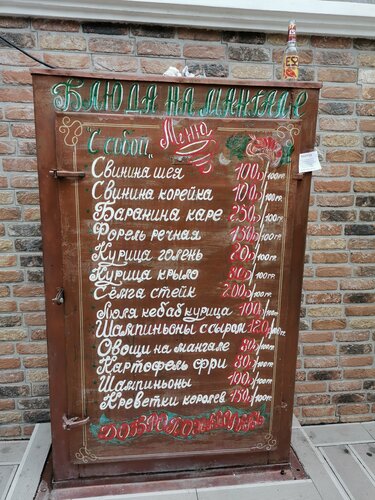 Блюда на мангале
"С собой"
Меню
Свинина шея 100р/100гр
Свинина корейка 100р/100гр
Баранина каре 250р/100гр
Форель речная 150р/100гр
Курица голень 80р/100гр
Курица крыло 80р/100гр
Сёмга стейк 200р/100гр
Люля кебаб курица 100р/100гр
Шампиньоны с сыром 120р/100гр
Овощи на мангале 80р/100гр
Картофель фри 80р/100гр
Шампиньоны 100р/100гр
Креветки королев 150р/100гр